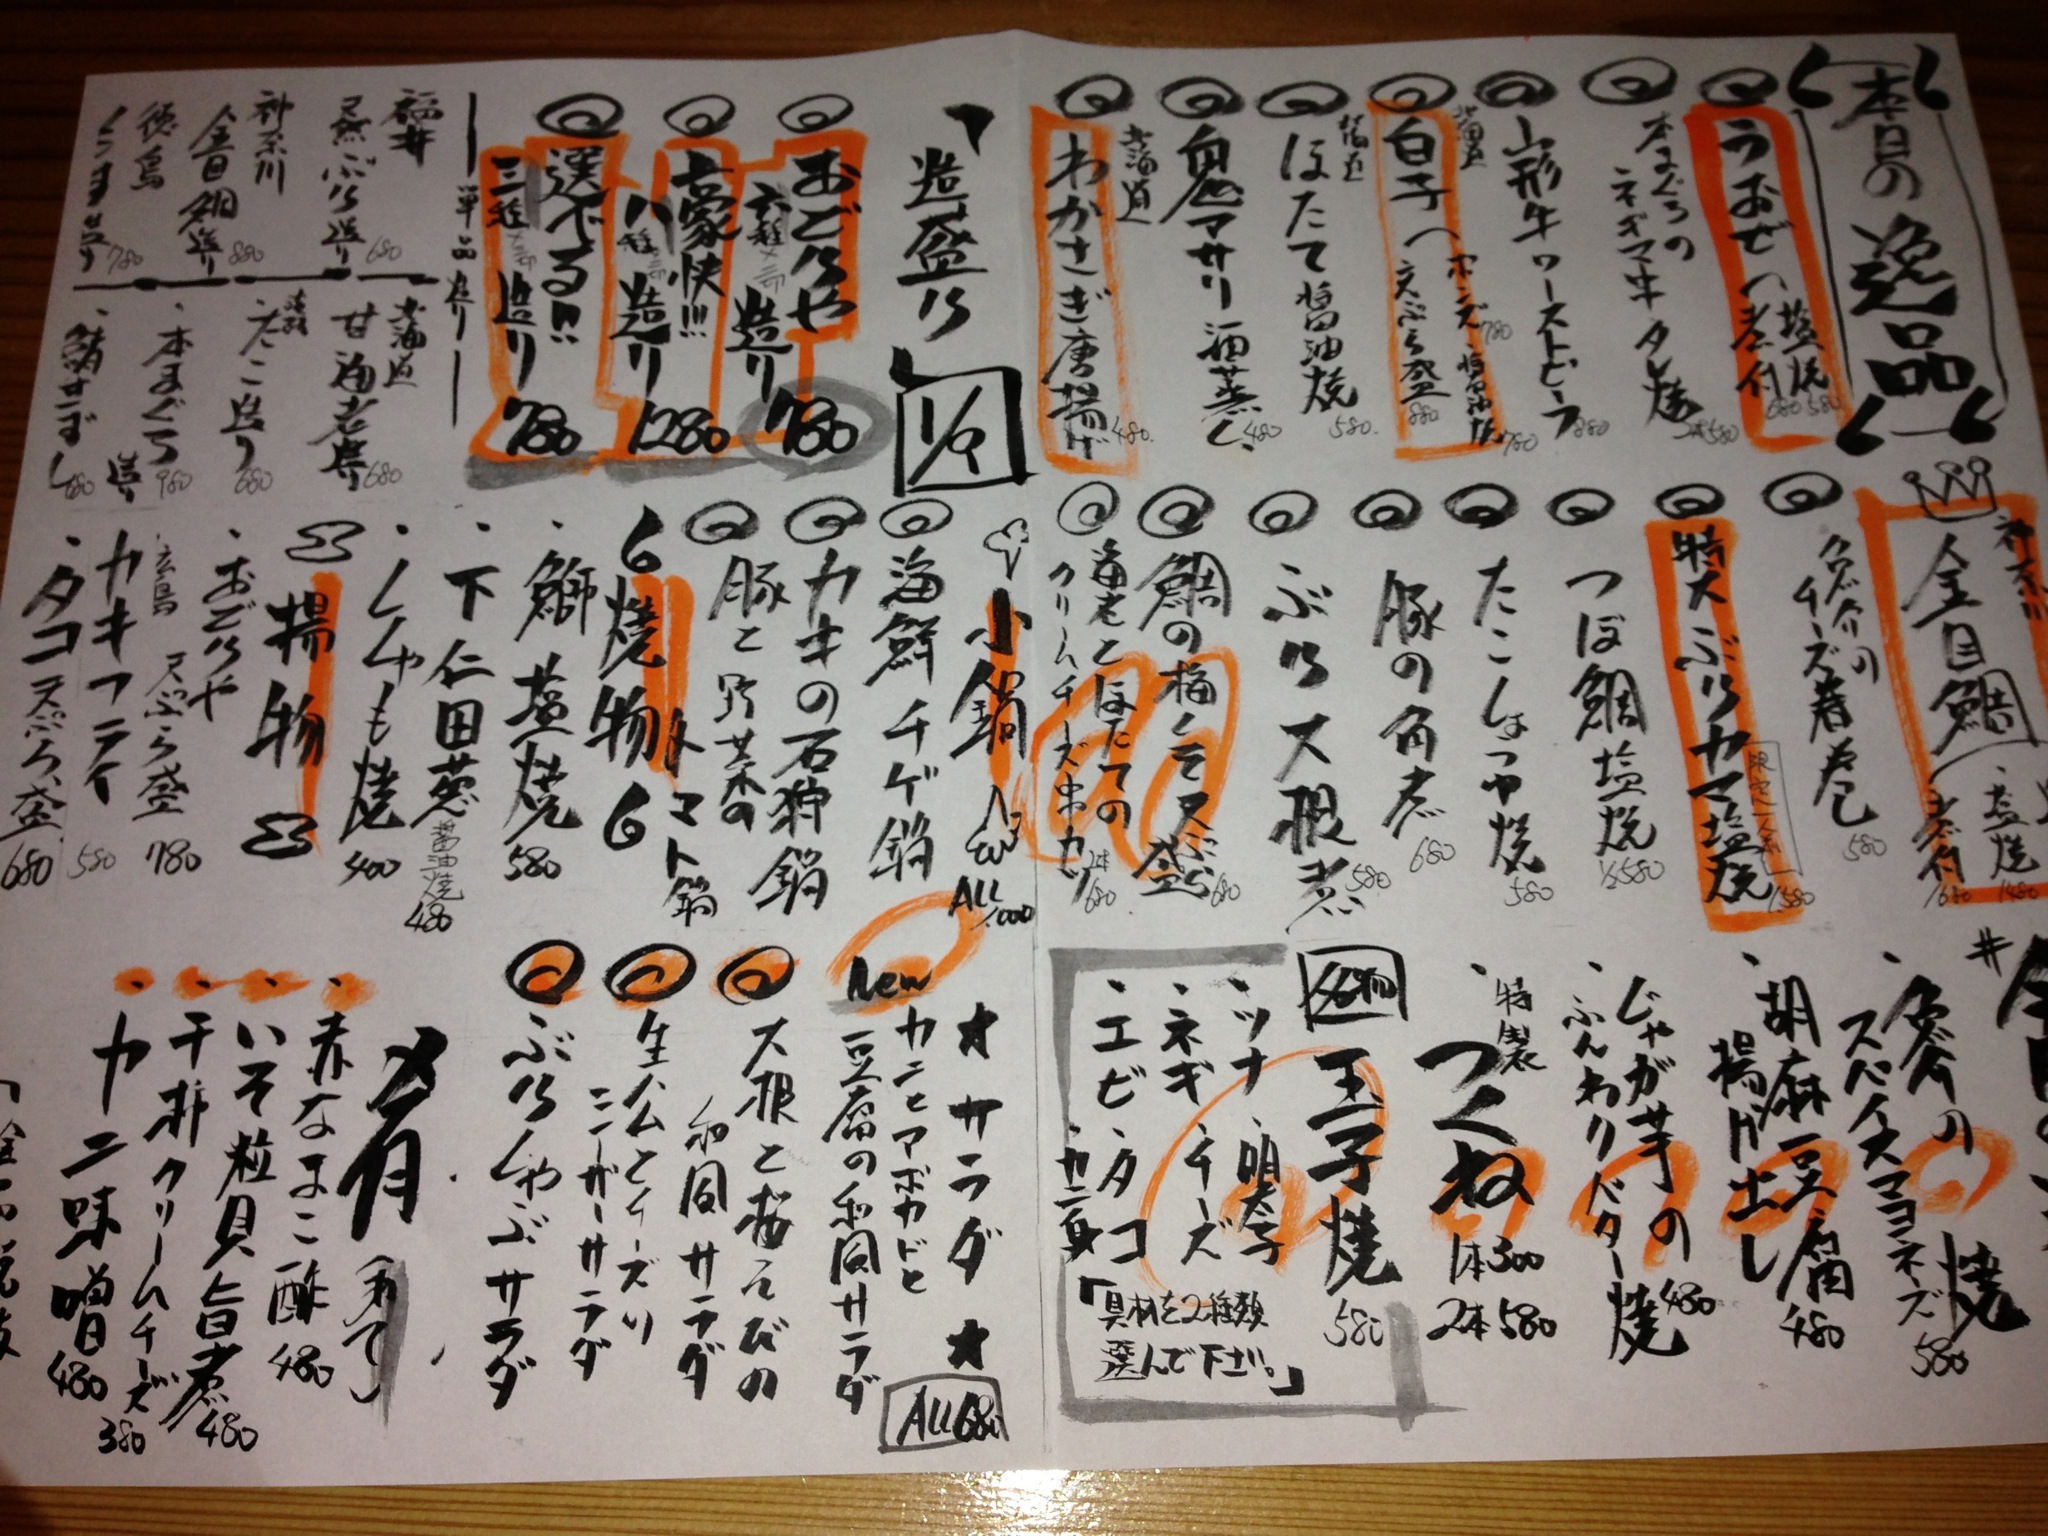 本日の逸品
塩焼 580
煮付 680
本まぐろの
ネギマ串タレ焼
2本580
山形牛ローストビーフ
880
北海道
白子
ポンズ 780
醤油焼 780
天ぷら盛 880
ほたて醤油焼
580
鬼アサリ酒蒸し
480
北海道
わかさぎ唐揚げ
480
造盛り
1/9
おどりや
六種 造り
780
豪快!!!
八種 造り
1280
選べる!!
三種 造り
780
単品造り
福井
天然ぶり造り
680
神奈川
金目鯛造り
880
徳島
780
北海道
甘海老造り
680
たこ造り
680
本まぐろ
造り
980
鯖きずし
680
神奈川
金目鯛
塩焼
1480
煮付
1680
チーズ春巻
580
特大ぶりカマ塩焼
1580
つぼ鯛塩焼
1/2 580
たこしょうゆ焼
580
豚の角煮
680
ぶり大根煮
580
鯛の梅しそ天ぷら盛
680
海老とほたての
クリームチーズ串カツ
2本680
小鍋
ALL 1,000
海鮮チゲ鍋
カキの石狩鍋
豚と野菜の
トマト鍋
焼物
鰤塩焼
580
下仁田葱
醤油焼
480
ししゃも焼
400
揚物
おどりや
天ぷら盛
780
広島
カキフライ
580
タコ天ぷら盛
680
スパイスマヨネーズ焼
580
胡麻豆腐
揚げ出し
480
じゃがȷ芋の
ふんわりバター焼
480
特製
つくね
1本300
2本580
名物
玉子焼
580
・ツナ ・明太子
・ネギ ・チーズ
・エビ ・タコ
・カニ身
「具材を2種類
選んで下さい。」
★サラダ★
ALL680
New
カニとアボカドと
豆腐の和風サラダ
大根と桜えびの
和風サラダ
生ハムとチーズ入り
シーザーサラダ
ぶりしゃぶサラダ
肴（あて）
・赤なまこ酢
480
・いそ粒貝旨煮
480
・干柿クリームチーズ
380
・カニ味噌
480